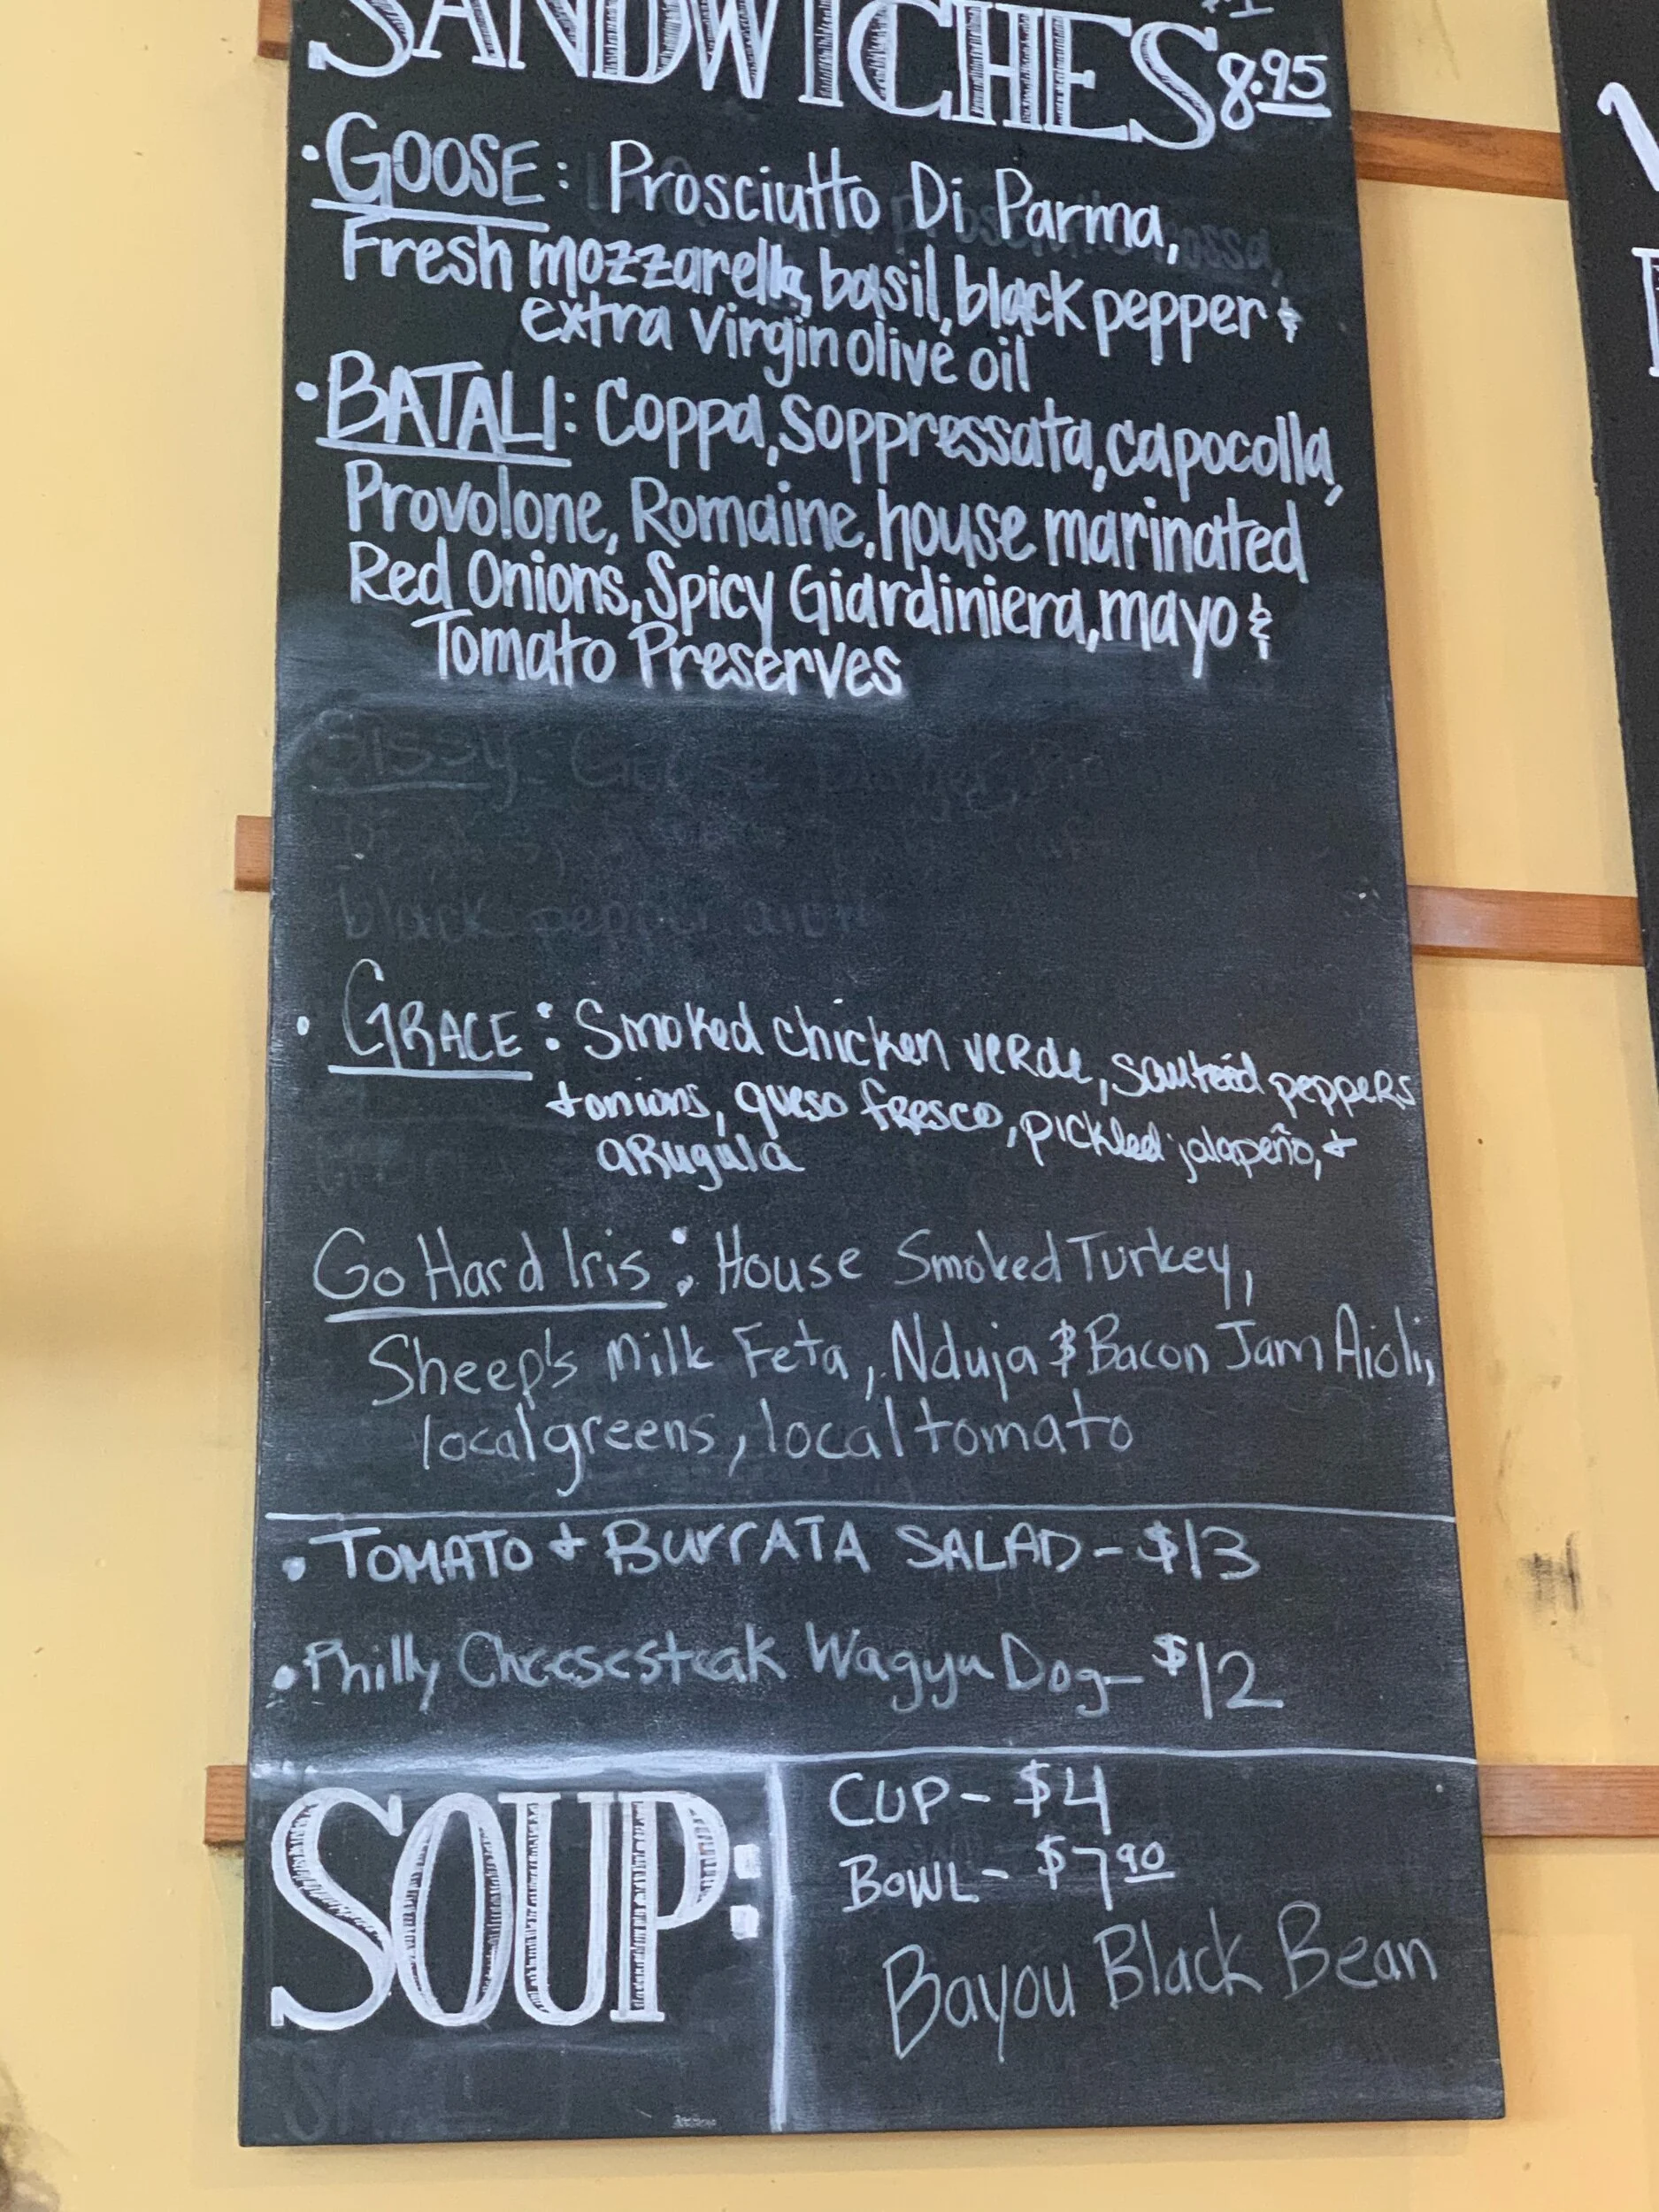 SANDWICHES 8.95
•GOOSE: Prosciutto Di Parma,
Fresh mozzarella, basil, black pepper &
extra virgin olive oil
•BATALI: Coppa, Soppressata, capocolla,
Provolone, Romaine, house marinated
Red Onions, Spicy Giardiniera, mayo &
Tomato Preserves
Sissy:
black pepper aioli
• GRACE: Smoked chicken verde, sauteéd peppers
+ onions, queso fresco, pickled jalapeño, +
arugula
Go Hard Iris: House Smoked Turkey,
Sheep's Milk Feta, Nduja & Bacon Jam Aioli,
local greens, local tomato
• TOMATO + BURRATA SALAD - $13
• Philly Cheesesteak Wagyu Dog - $12
SOUP:
CUP - $4
BOWL - $7.90
Bayou Black Bean